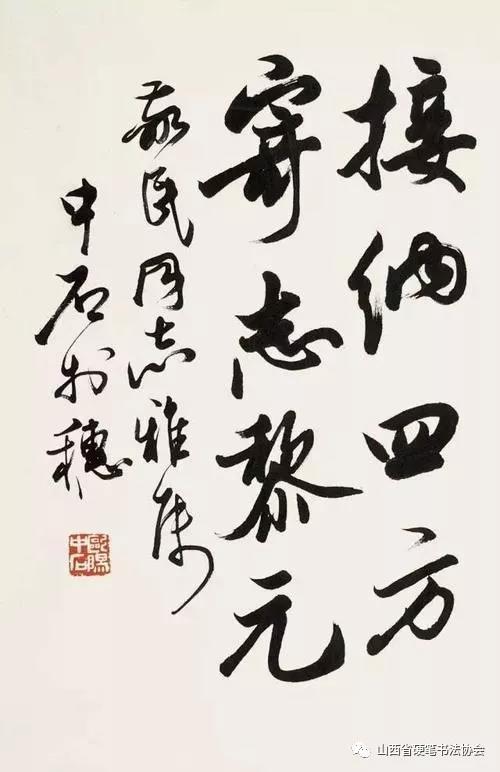 接纳四方
寄志黎元
敬民同志雅属
中石於穗
歐陽中石
山西省硬笔书法协会